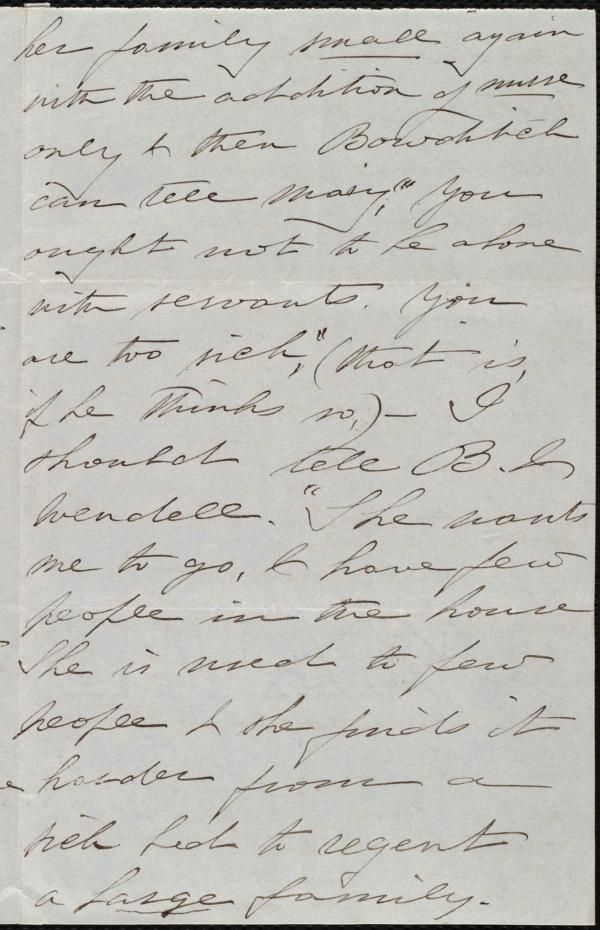 her family small again
with the addition of nurse
only & then Bowditch
can tell Mary, "You
ought not to be alone
with servants. You
are too sick," (that is,
if he thinks so,) – I
should tell B. &
Wendell. "She wants
me to go, & have few
people in the house
She is used to few
people & she finds it
harder from a
sick bed to regent
a large family.